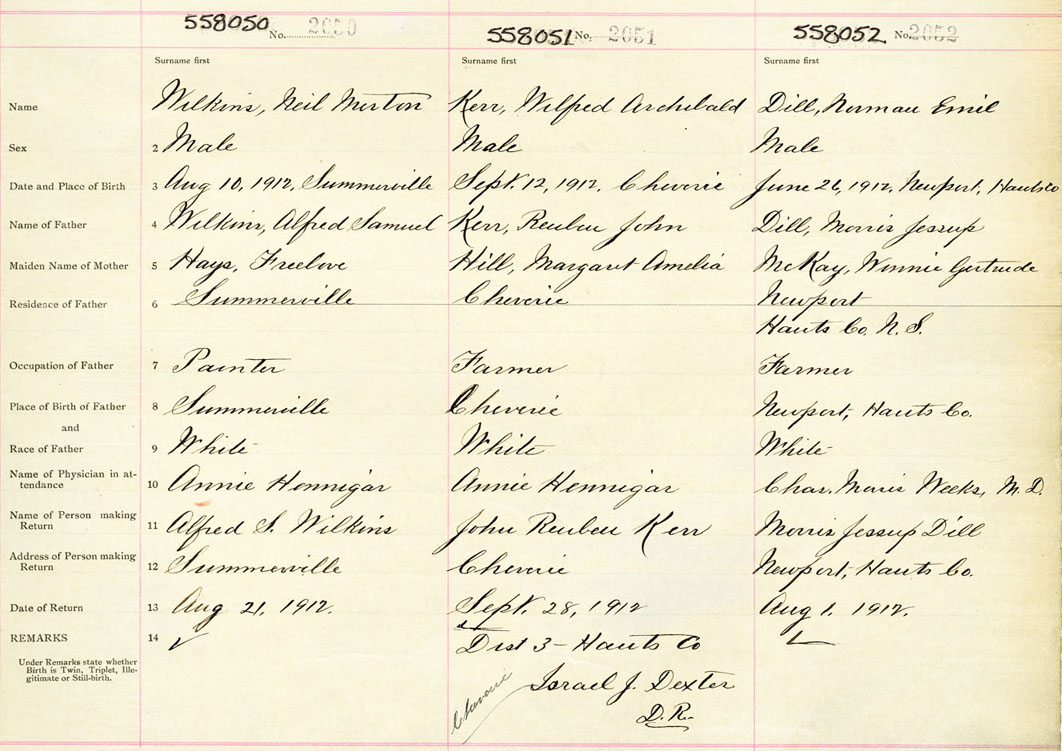 558050 No. 2050 558051 No. 2051 558052 No. 2052
Surname first Surname first Surname first
Name Wilkins, Neil Merton Kerr, Wilfred Archibald Dill, Norman Emil
Sex 2 Male Male Male
Date and Place of Birth 3 Aug 10, 1912, Summerville Sept. 12, 1912. Cheverie June 26, 1912, Newport, Hants Co
Name of Father 4 Wilkins, Alfred Samuel Kerr, Reuben John Dill, Morris Jessup
Maiden Name of Mother 5 Hays, Freelove Hill, Margaret Amelia McKay, Winnie Gertrude
Residence of Father 6 Summerville Cheverie Newport
Hants Co. N.S.
Occupation of Father 7 Painter Farmer Farmer
Place of Birth of Father 8 Summerville Cheverie Newport, Hants Co.
and
Race of Father 9 White White White
Name of Physician in at-
tendance 10 Annie Hennigar Annie Hennigar Chas. Morris Weeks, M.D.
Name of Person making
Return 11 Alfred S. Wilkins John Reuben Kerr Morris Jessup Dill
Address of Person making
Return 12 Summerville Cheverie Newport, Hants Co.
Date of Return 13 Aug 21, 1912. Sept. 28, 1912 Aug 1. 1912.
REMARKS 14 Dist 3 - Hants Co
Under Remarks state whether
Birth is Twin, Triplet, Ille-
gitimate or Still-birth.
Israel J. Dexter
Cheverie
D.R.